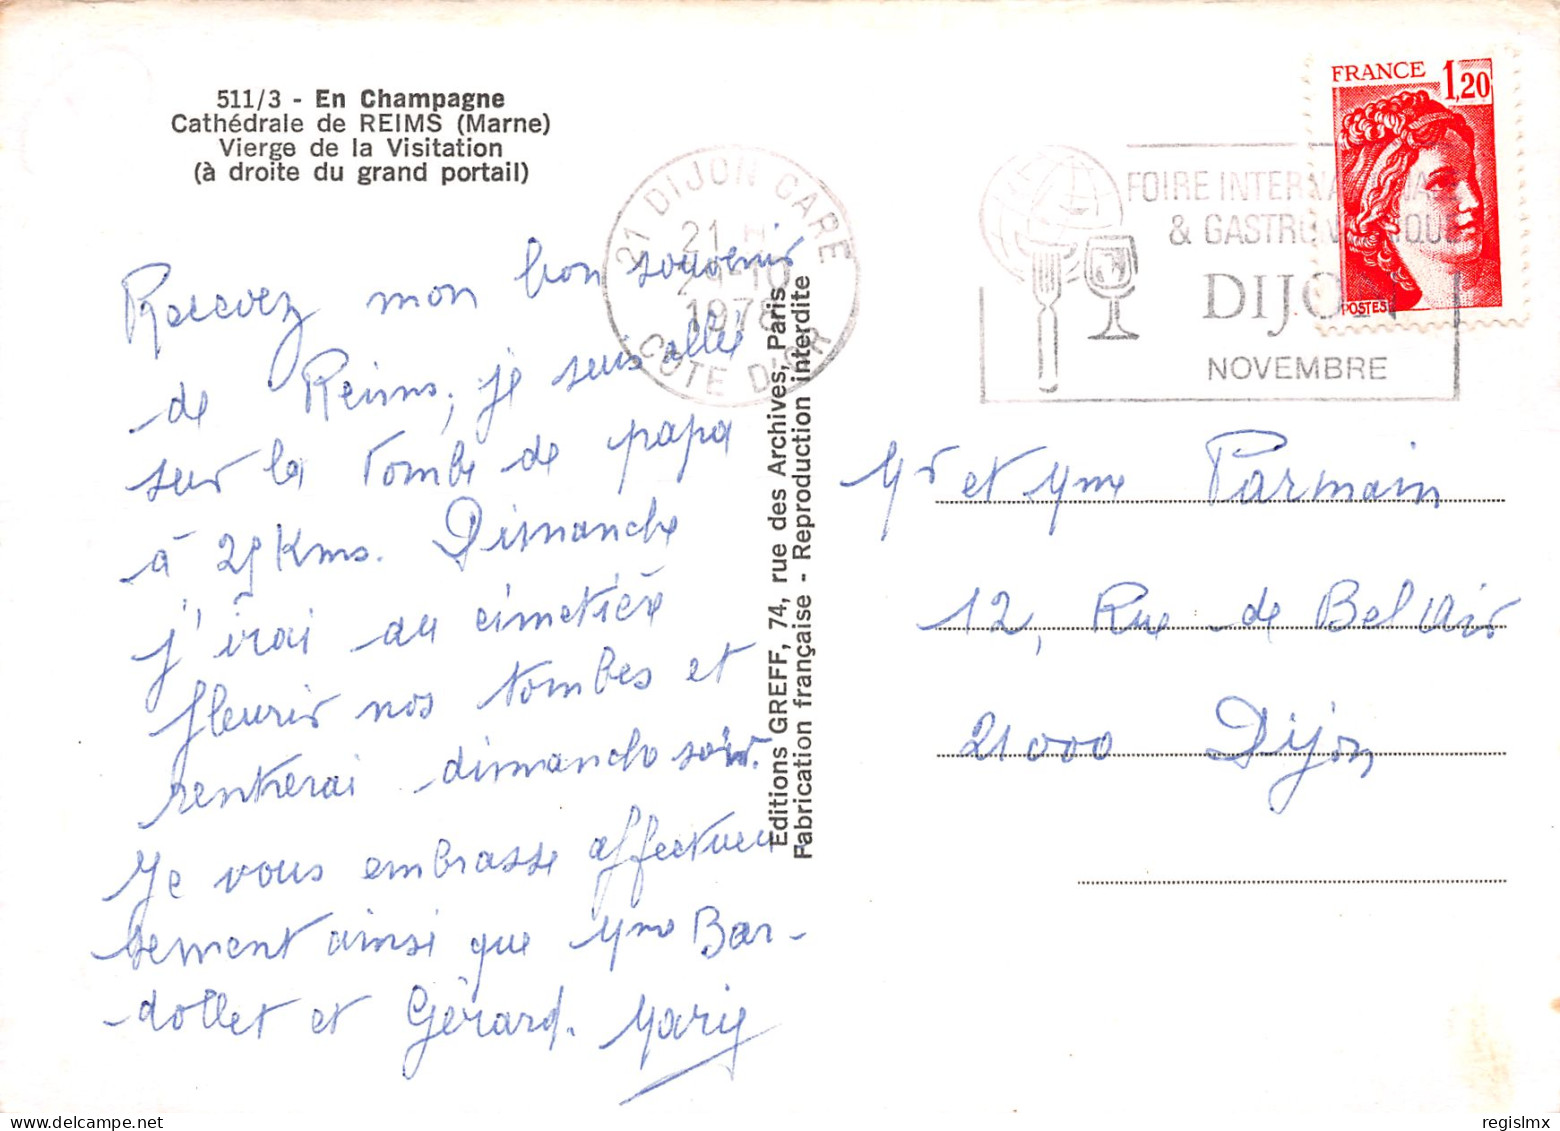 511/3 - En Champagne
Cathédrale de REIMS (Marne)
Vierge de la Visitation
(à droite du grand portail)
Recevez mon bon souvenir
de Reims, je suis allée
sur la tombe de papa
à 25 Kms. Dimanche
j'irai au cimetière
fleurir nos tombes et
rentrerai dimanche soir.
Je vous embrasse affectueu
sement ainsi que Mme Bar-
dollet et Gérard. Marie
Editions GREFF, 74, rue des Archives, Paris
Fabrication française - Reproduction interdite
21 DIJON GARE
21 H
10
1978
COTE D'OR
FOIRE INTERNATIONALE
& GASTRONOMIQUE
DIJON
NOVEMBRE
FRANCE 1,20
POSTES
Mr et Mme Parmain
12, Rue de Bel Air
21000 Dijon
regislmx